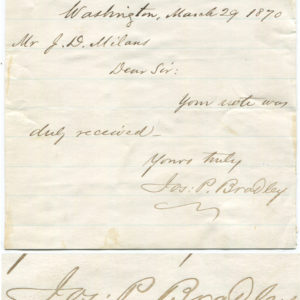 Washington, March 29 1870
Mr J. D. Milans
Dear Sir:
Your note was
duly received—
Yours truly
Jos: P. Bradley
Jos: P. Bradley